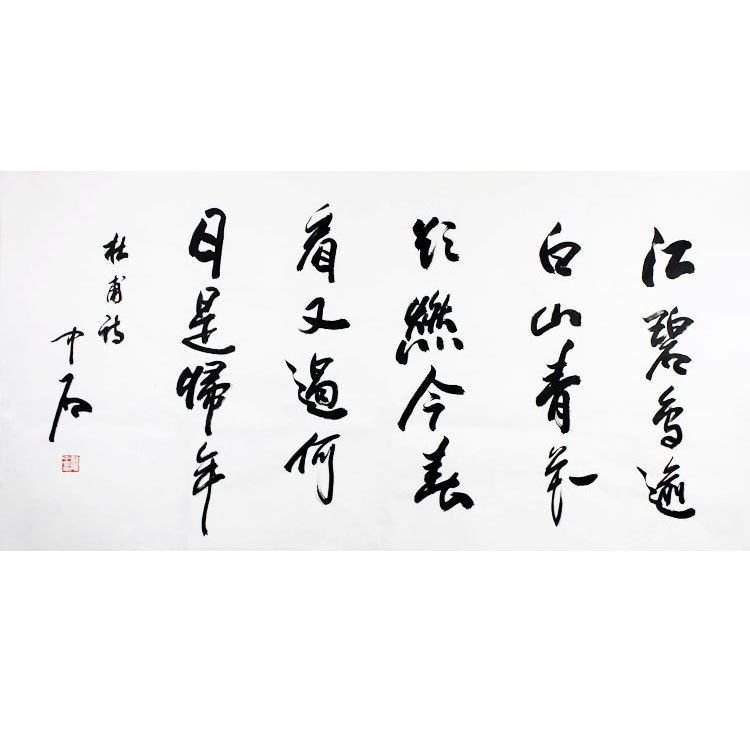 江碧鳥逾
白山青花
欲燃今春
看又過何
日是歸年
杜甫詩
中石